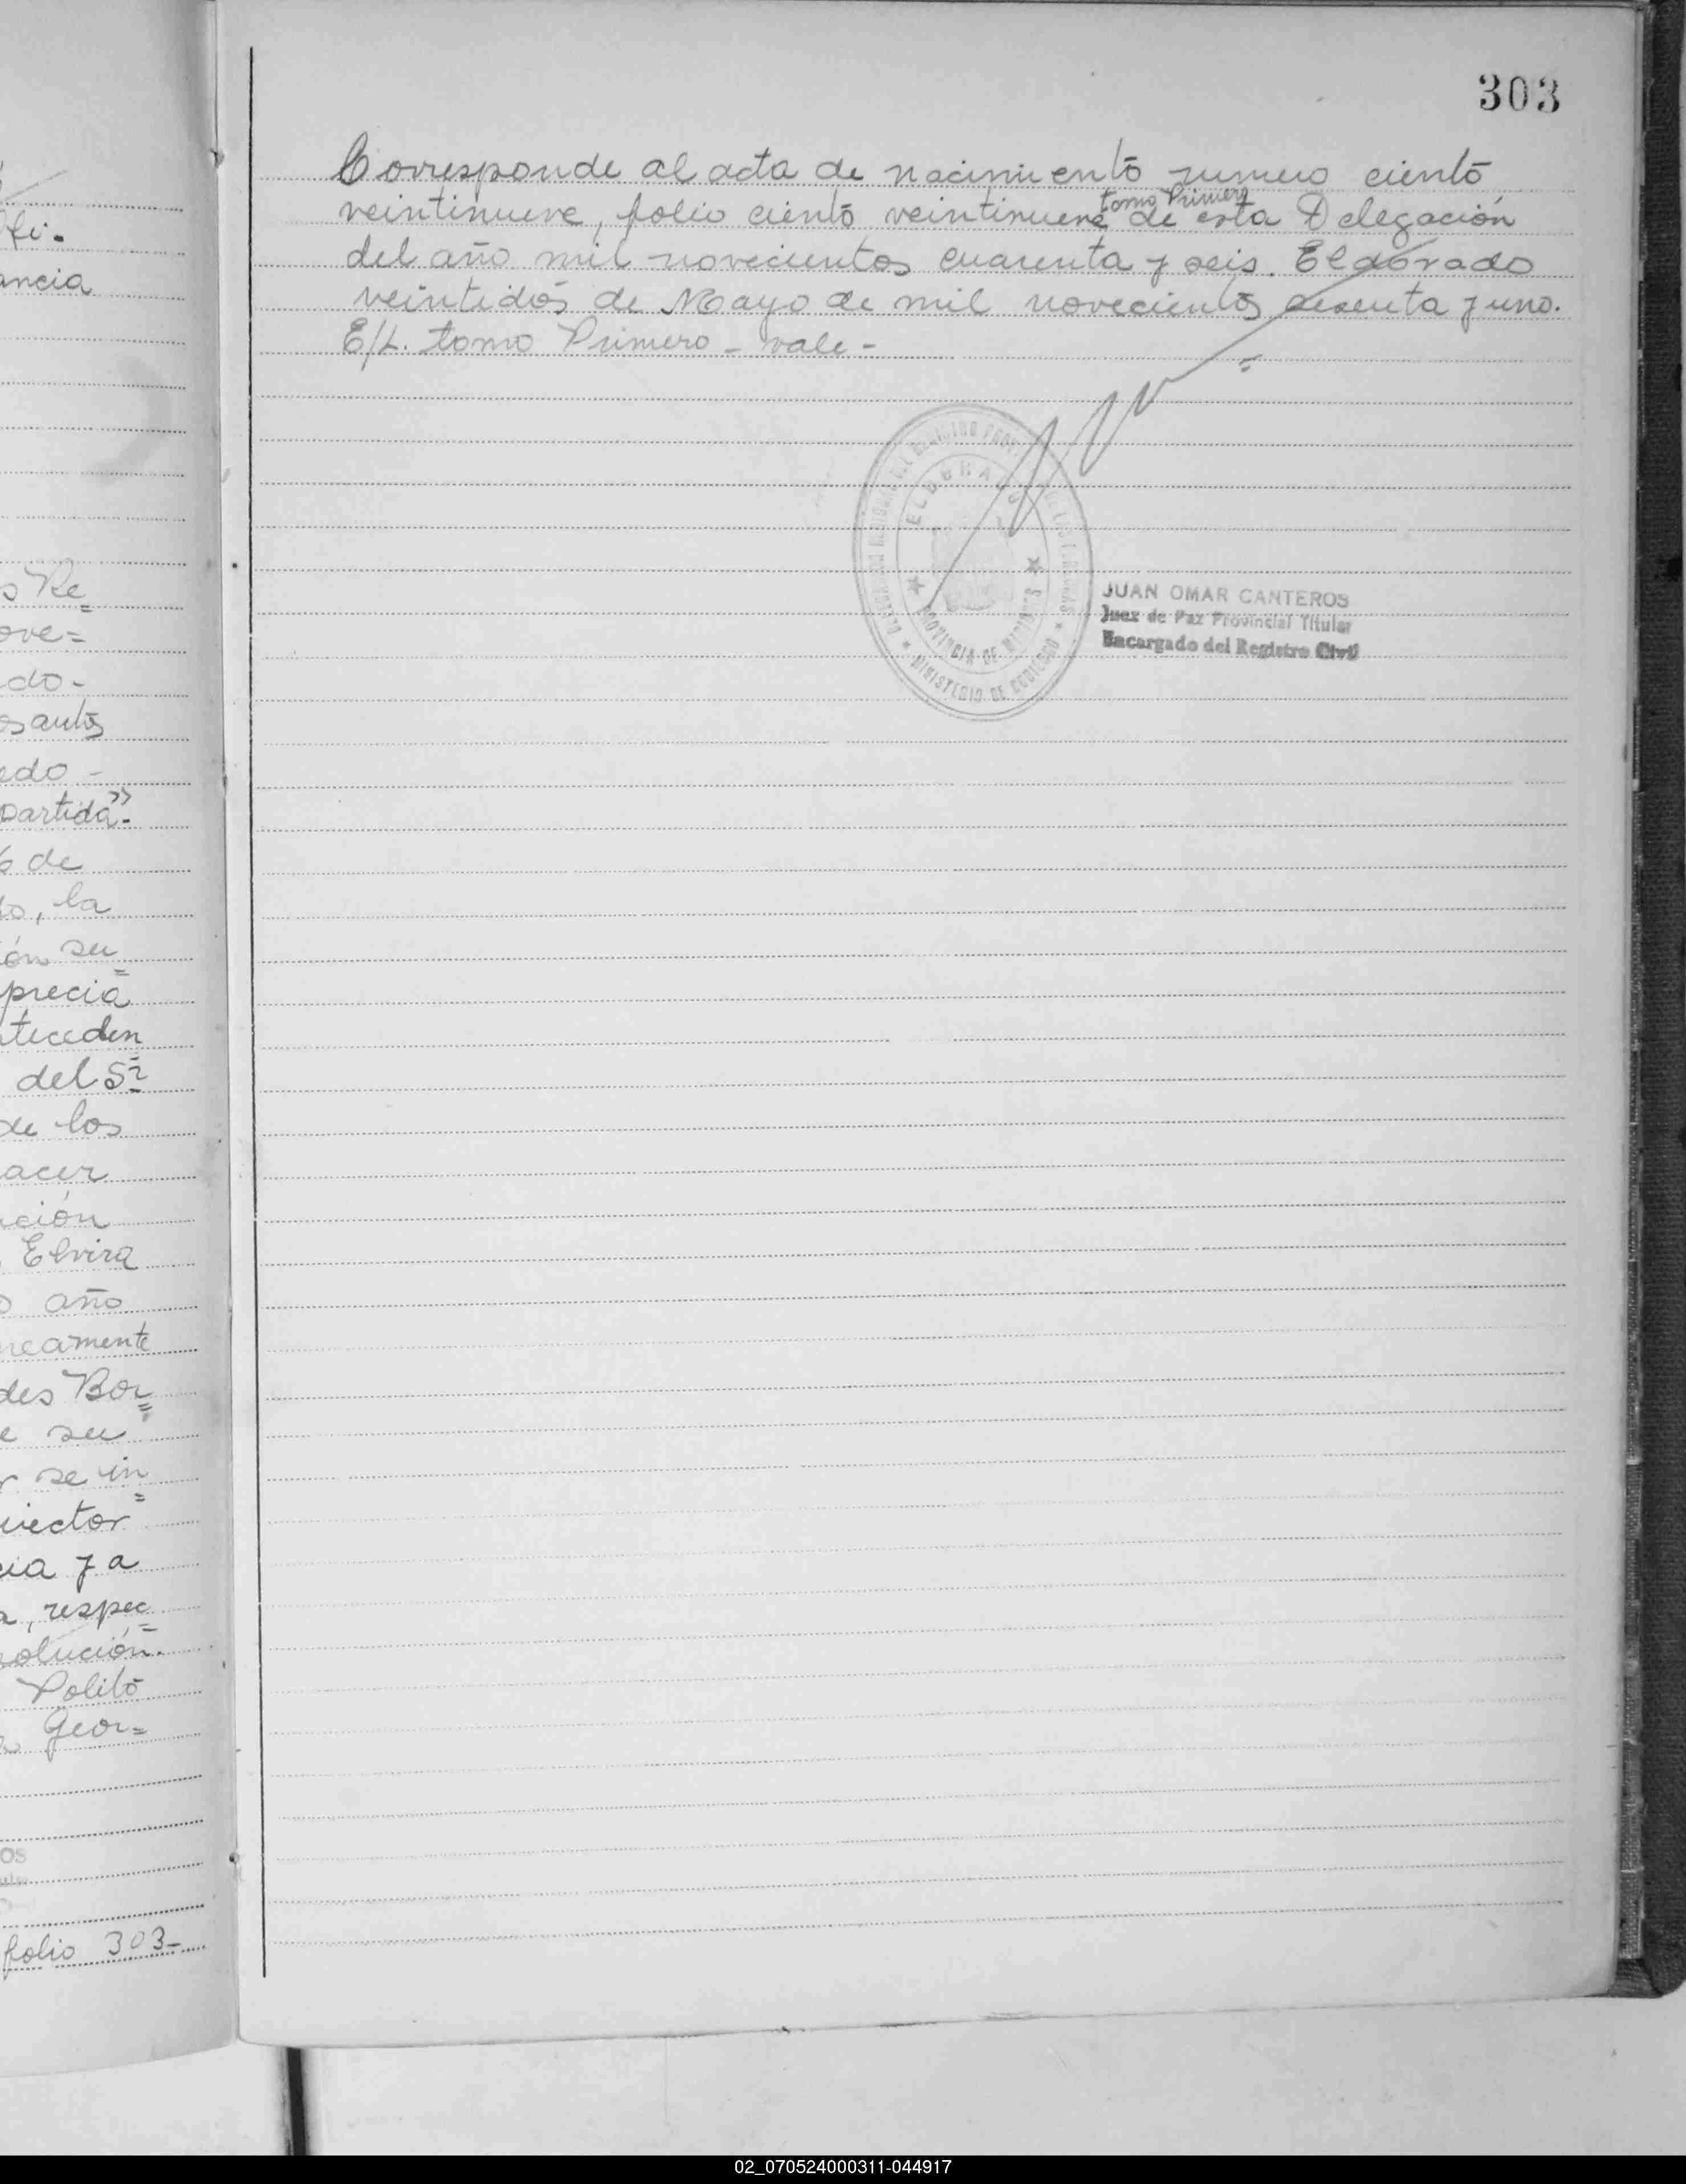 fi.
ancia
s Re
ove=
do-
santos
edo -
partida".
6 de
to, la
ión su
precia
teceden
del Sr
de los
acer
ución
Elvira
o año
neamente
des Bor
e su
r se in
irector
cia y a
a, respec
solución.
Polito
Geor=
OS
folio 303-
303
Corresponde al acta de nacimiento numero ciento
tomo Primero
veintinueve, folio ciento veintinueve de esta Delegación
del año mil novecientos cuarenta y seis. Eldorado
veintidós de Mayo de mil novecientos sesenta y uno.
E/L. tomo Primero - vale -
ELDORADO
PROVINCIA DE MISIONES
MINISTERIO DE GOBIERNO
JUAN OMAR CANTEROS
Juez de Paz Provincial Titular
Encargado del Registro Civil
02_070524000311-044917